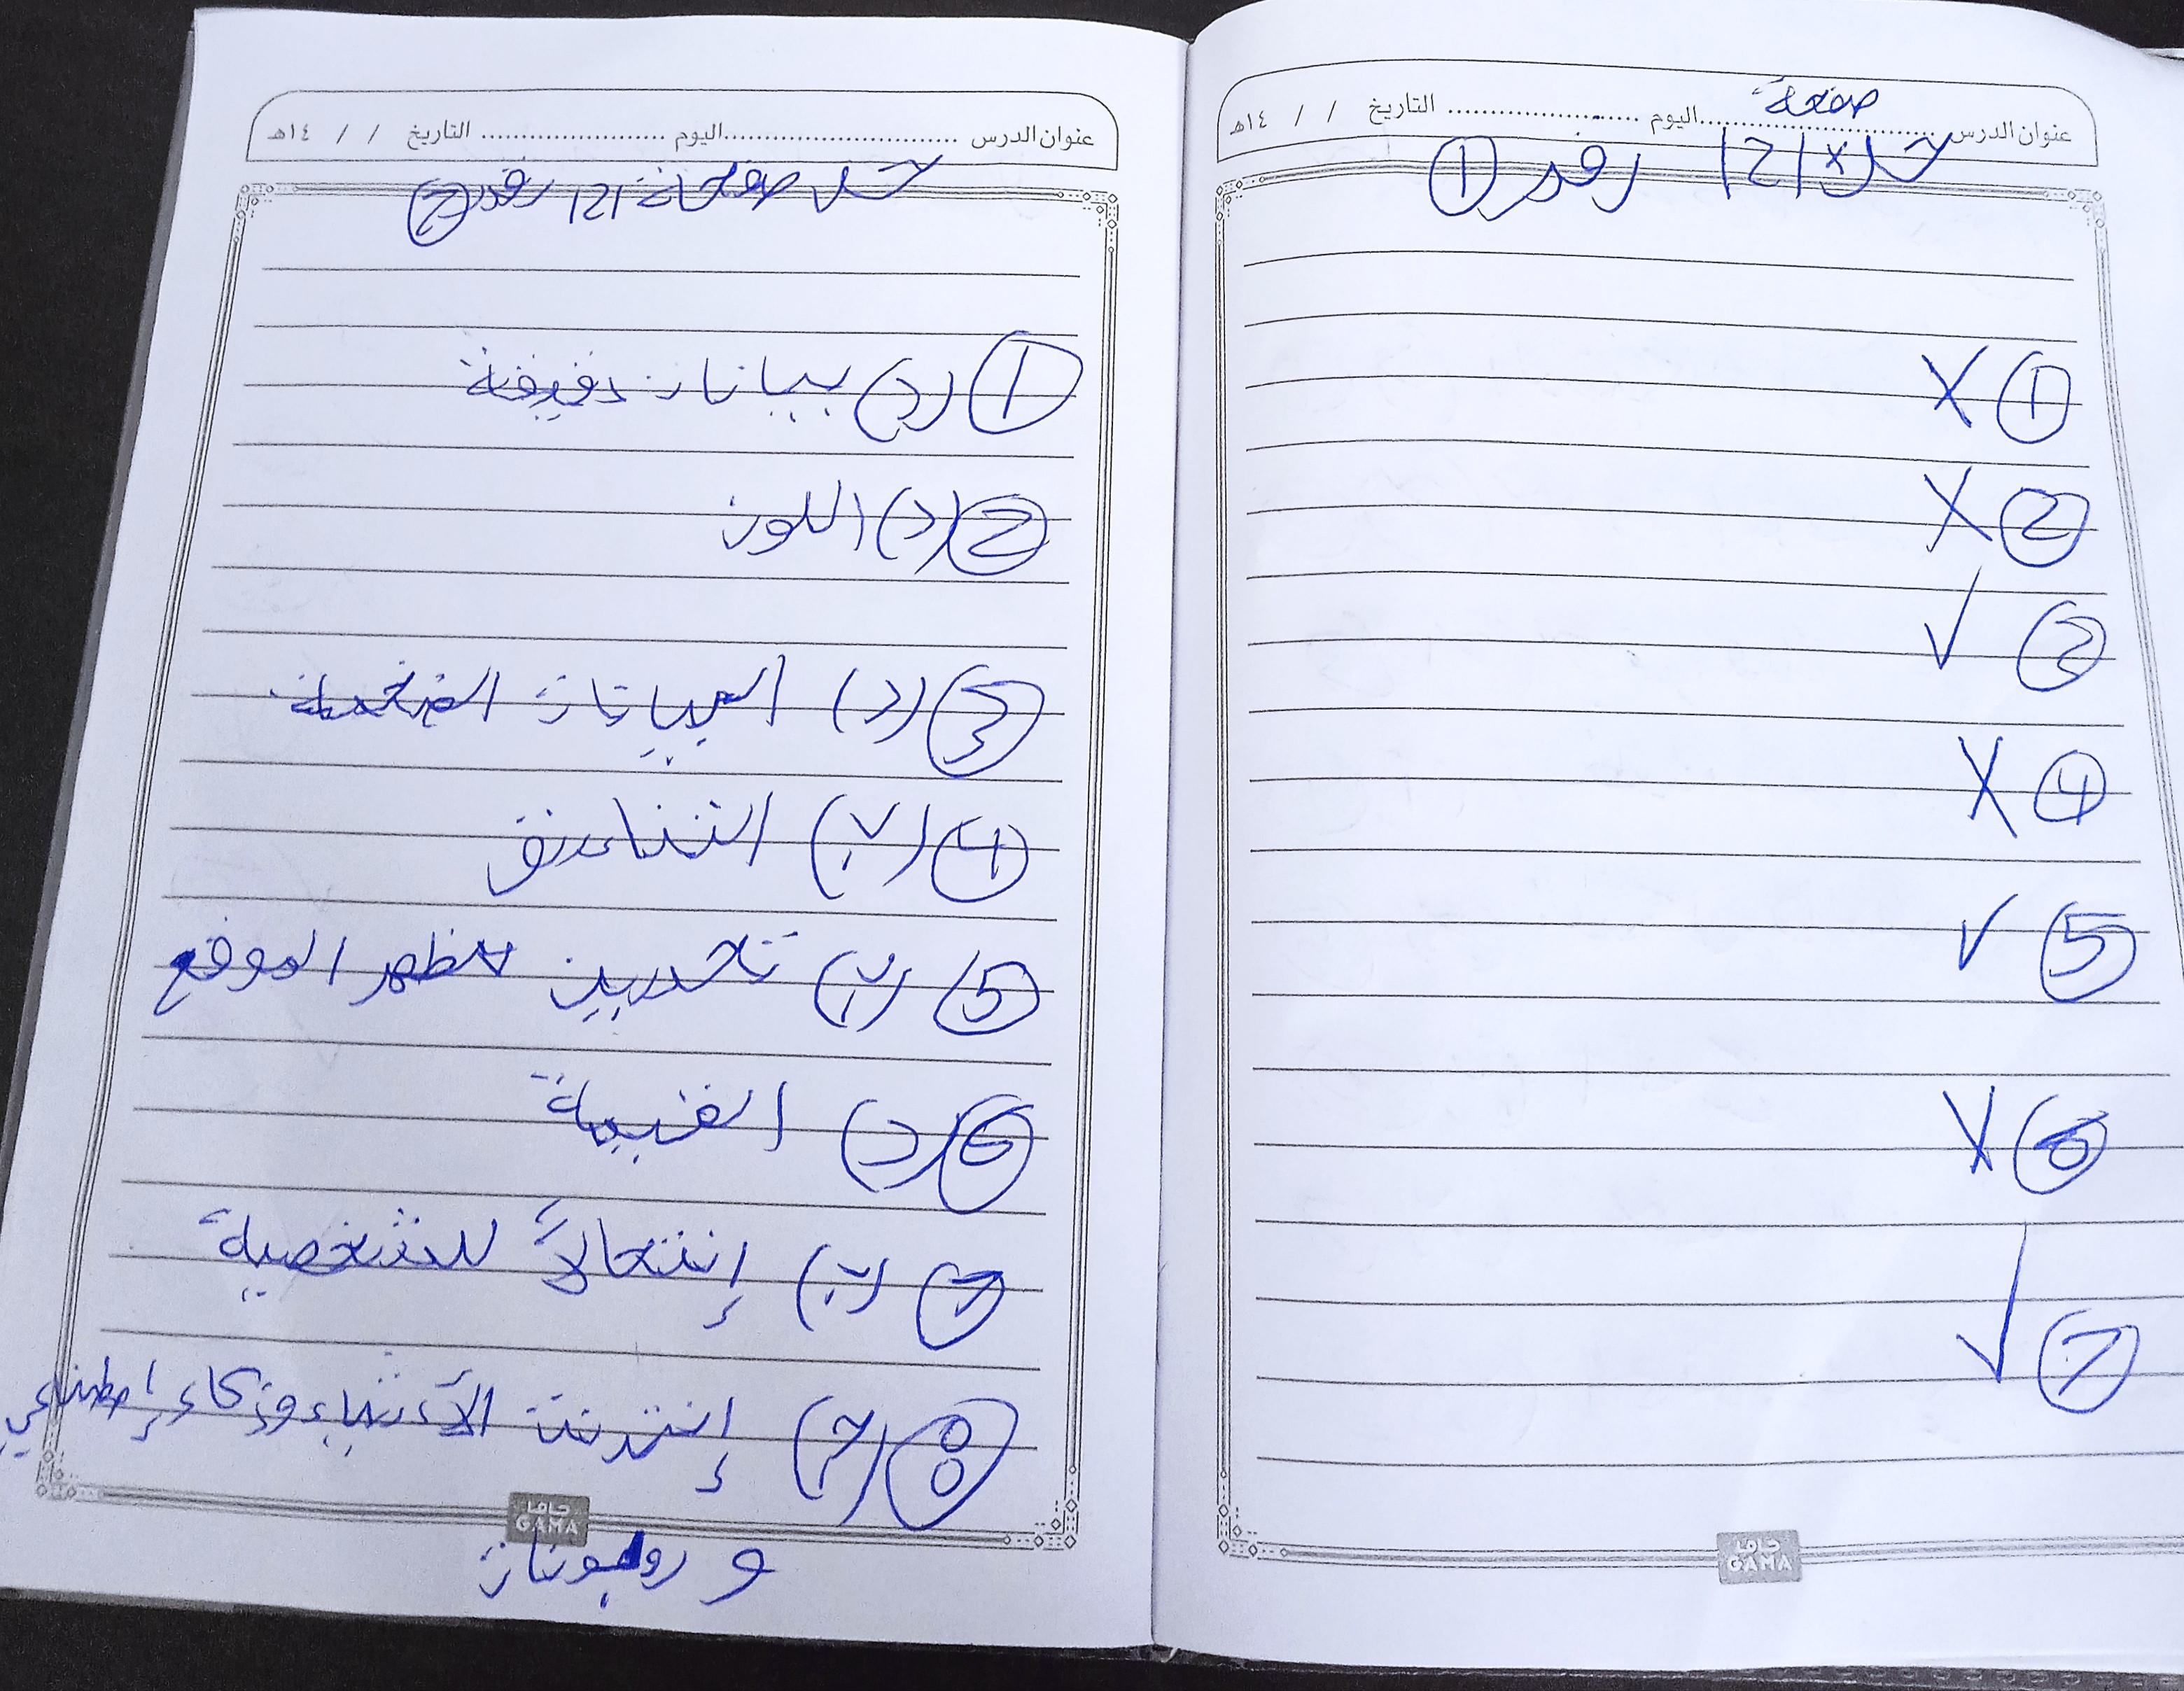 عنوان الدرس ........ اليوم ........ التاريخ / / ١٤هـ
صفحة
حل 121 رقم 1
1 X
2 X
3 ✓
4 X
5 ✓
6 X
7 ✓
جاما
GAMA
عنوان الدرس ........ اليوم ........ التاريخ / / ١٤هـ
حل صفحة 121 رقم 2
1 (د) بيانات دقيقة
2 (د) اللون
3 (د) البيانات الضخمة
4 (ب) التناسق
5 (ب) تحسين مظهر الموقع
6 (د) القيمة
7 (ب) إنتحالاً للشخصية
8 (ج) إنترنت الأشياء وذكاء إصطناعي
جاما
GAMA
و روبوتات